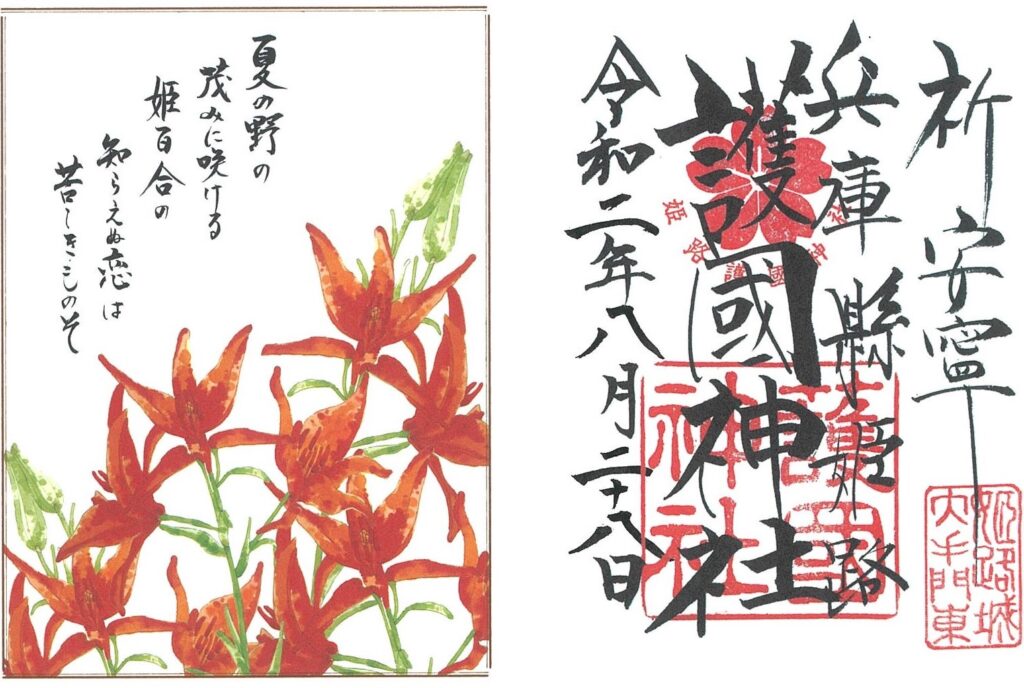 祈安寧
姫路城
大手門東
兵庫縣姫路
護國神社
姫路護國神社
護國
神社
令和二年八月二十八日
夏の野の
茂みに咲ける
姫百合の
知らえぬ恋は
苦しきものそ